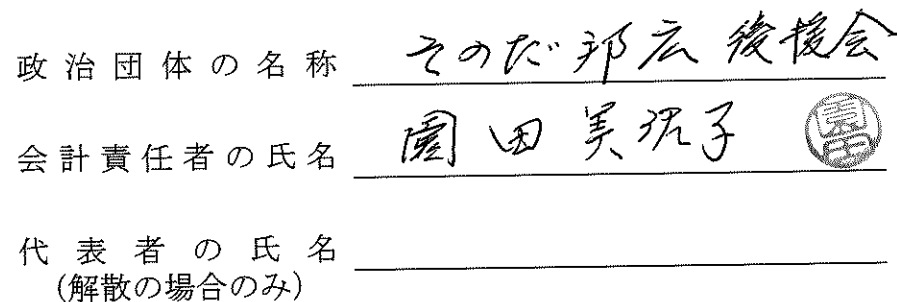 政治団体の名称 そのだ邦広後援会
会計責任者の氏名 園田美沢子 園田
代表者の氏名
(解散の場合のみ)